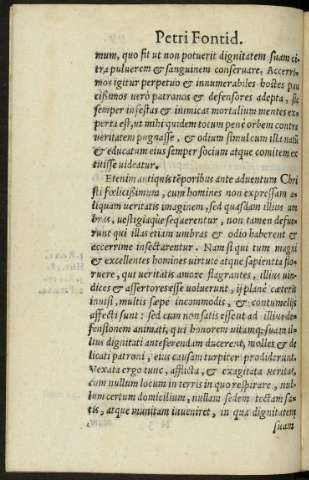 Petri Fontid.
mum, quo fit ut non potuerit dignitatem suam ci-
tra pulverem & sanguinem conservare. Acerri-
mos igitur perpetuo & innumerabiles hostes pau
cißimos verò patronos & defensores adepta, sic
semper infestas & inimicas mortalium mentes ex-
perta est, ut mihi quidem totum penè orbem contra
veritatem pugnasse, & odium simul cum illa natū
& educatum eius semper socium atque comitem ex
titisse videatur.
Etenim antiquis tēporibus ante adventum Chri
sti fœlicißimum, cum homines non expressam a-
liquam veritatis imaginem, sed quasdam illius um
bras, vestigiaque sequerentur, non tamen defue-
runt qui illas etiam umbras & odio haberent &
acerrime insectarentur. Nam si qui tum magni
& excellentes homines virtute atque sapientia flo-
ruere, qui veritatis amore flagrantes, illius vin-
dices & assertores esse voluerunt, ij planè cæteris
invisi, multis sæpe incommodis, & contumelijs
affecti sunt: sed cum non satis essent ad illius de-
fensionem animati, qui honorem vitamq; suam il-
lius dignitati anteferendam ducerent, molles & de
licati patroni, eius causam turpiter prodiderunt.
Vexata ergo tunc, afflicta, & exagitata veritas,
cum nullum locum in terris in quo respirare, nul-
lum certum domicilium, nullam sedem tectam sa-
tis, atque munitam inveniret, in qua dignitatem
suam